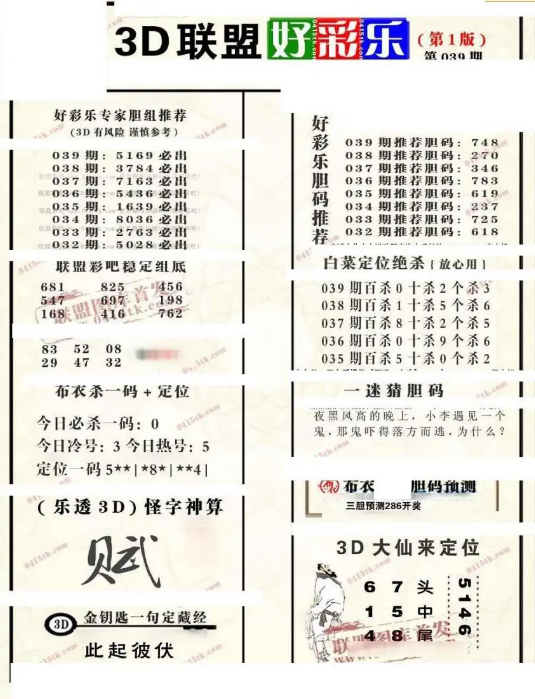 3D联盟好彩乐(第1版)
第039期
好彩乐专家胆组推荐
(3D有风险 谨慎参考)
039期: 5169必出
038期: 3784必出
037期: 7163必出
036期: 5436必出
035期: 1639必出
034期: 8036必出
033期: 2763必出
032期: 5028必出
联盟彩吧稳定组底
681 825 456
547 697 198
168 416 762
83 52 08
29 47 32
布衣杀一码+定位
今日必杀一码: 0
今日冷号: 3今日热号: 5
定位一码5**|*8*|**4|
(乐透3D)怪字神算
赋
3D 金钥匙一句定藏经
此起彼伏
好彩乐胆码推荐
039期推荐胆码: 748
038期推荐胆码: 270
037期推荐胆码: 346
036期推荐胆码: 783
035期推荐胆码: 619
034期推荐胆码: 237
033期推荐胆码: 725
032期推荐胆码: 618
白菜定位绝杀{放心用}
039期百杀0十杀2个杀3
038期百杀1十杀5个杀6
037期百杀8十杀2个杀5
036期百杀0十杀9个杀6
035期百杀5十杀0个杀2
一迷猜胆码
夜黑风高的晚上，小李遇见一个
鬼，那鬼吓得落方而逃，为什么？
布衣 胆码预测
三胆预测286开奖
3D大仙来定位
6 7 头
1 5 中
4 8 尾
5146